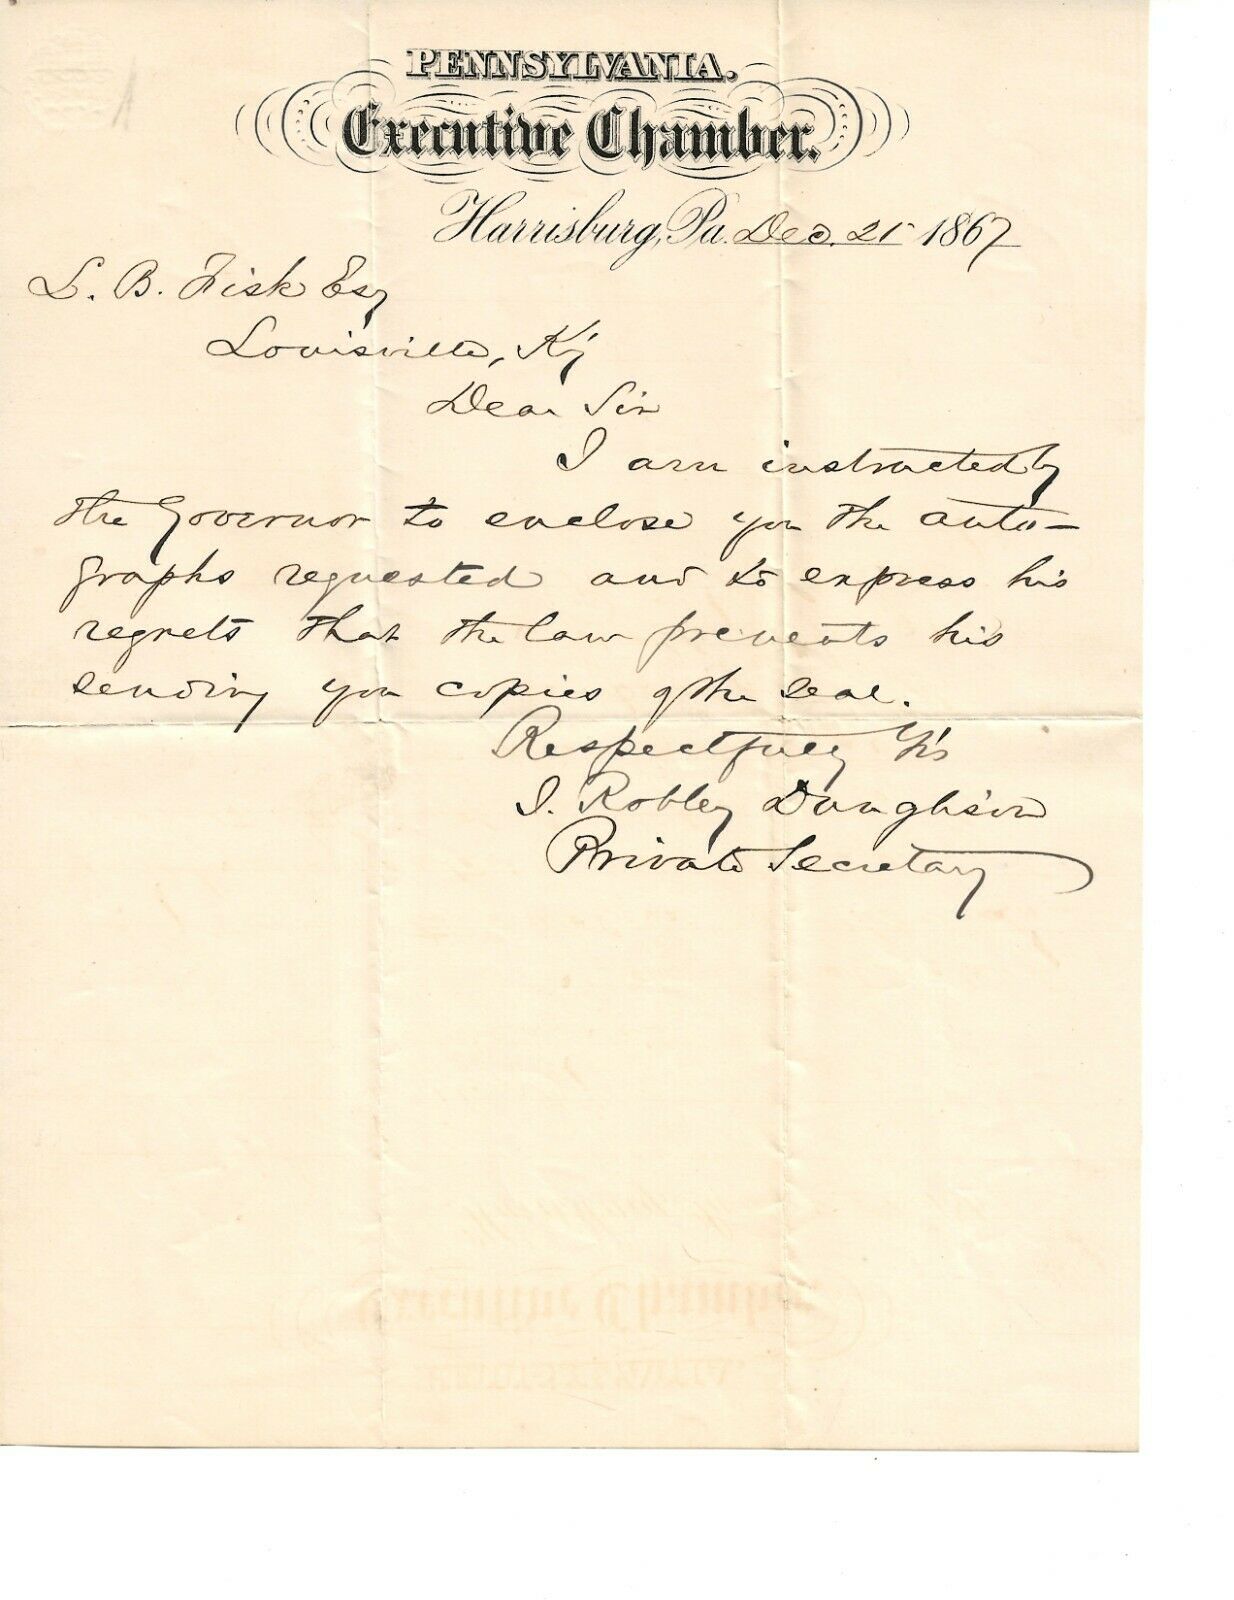 PENNSYLVANIA.
Executive Chamber.
Harrisburg, Pa. Dec. 21 1867
L. B. Fisk Esq
Louisville, Ky
Dear Sir
I am instructed by
the Governor to enclose you the auto-
graphs requested and to express his
regrets that the law prevents his
sending you copies of the seal.
Respectfully Yrs
I. Robley Dunglison
Private Secretary